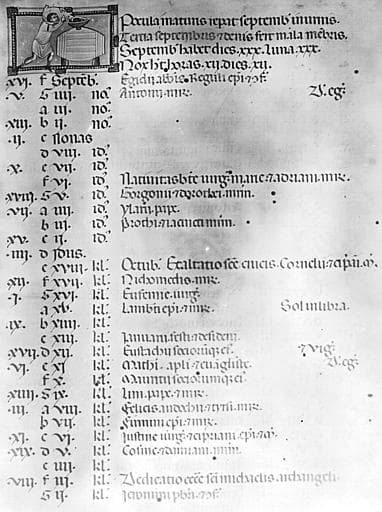 Procula maturis replat septemb(er) uvinus.
Tertia septembris & denis fert mala mebris.
Septemb habet dies .xxx. luna .xxx.
Nox ht horas .xii. dies .xii.
.xvi. f Septeb. Egidii abbis. Regilii epi & of.
.v. G iiii. no. Antoni mr. V. eg.
a iii. no.
.xiii. b ii. no.
.ii. c Nonas
d viii. id.
.x. e vii. id.
f vi. id. Nativitas bte uirg marie & adriani mr.
.xviii. G v. id. Gorgonii & dorothei mm.
.vii. a iiii. id. Ylarii pape.
b iii. id. Prothi & iacincti mm.
.xv. c ii. id.
.iiii. d Idus.
e xviii. kl. Octub. Exaltatio sce crucis. Cornelii & cipani m.
.xii. f xvii. kl. Nichomedis mr.
.i. G xvi. kl. Eufemie uirg.
a xv. kl. Lambti epi & mr. Sol in libra.
.ix. b xiiii. kl.
c xiii. kl. Januarii festi & desiderii.
.xvii. d xii. kl. Eustachii socioruq ei. & vig.
.vi. e xi. kl. Mathi apli & euagliste. V. eg.
f x. kl. Mauritii socioruq ei.
.xiiii. G ix. kl. Lini pape & mr.
.iii. a viii. kl.
b vii. kl. Firmini epi & mr.
.xi. c vi. kl. Justine uirg & cipriani epi & m.
.xix. d v. kl. Cosme & damiani mm.
e iiii. kl.
.viii. f iii. kl. Dedicatio ecce sci michaelis archangeli.
G ii. kl. Jeronimi pbri & of.